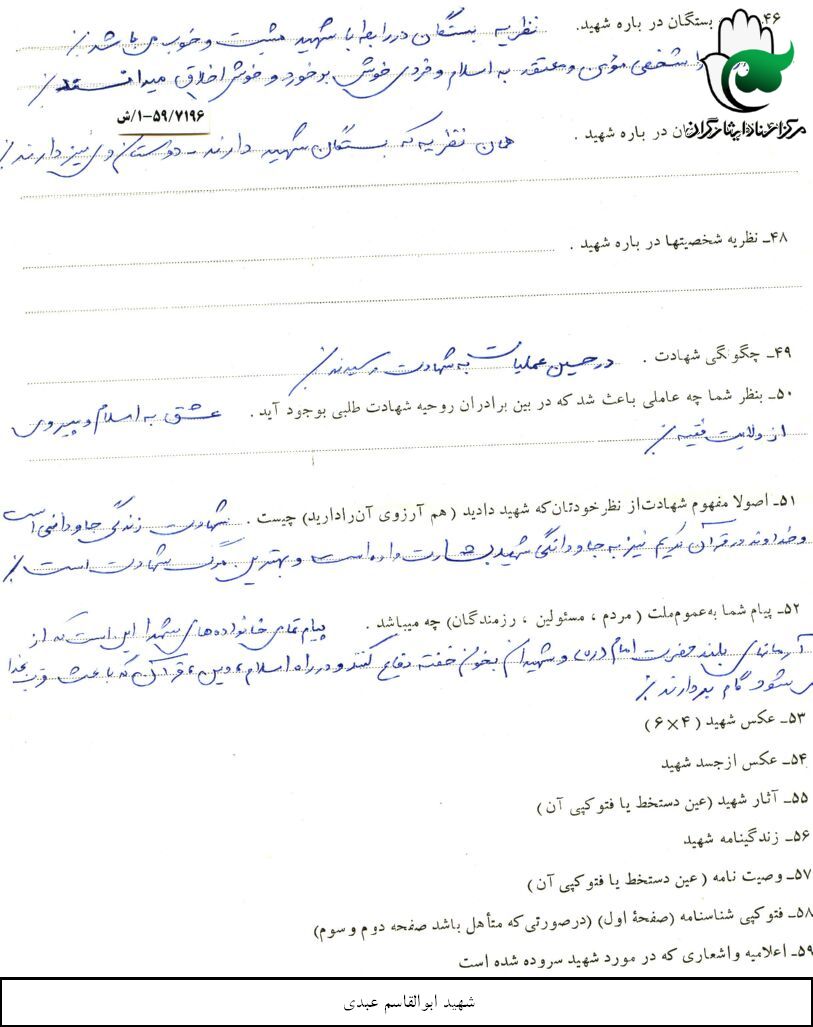 ۴۶ـ بستگان در باره شهید. نظریه بستگان در رابطه با شهید مثبت و خوب می باشد /.
را شخصی مؤمن و معتقد به اسلام و فردی خوش برخورد و خوش اخلاق میدانستند /.
۱-۵۹/۷۱۹۶/ش
مرکز اسناد ایثارگران
ان در باره شهید . همان نظریه که بستگان شهید دارند - دوستان وی نیز دارند /.
۴۸ـ نظریه شخصیتها در باره شهید .
۴۹ـ چگونگی شهادت . در حین عملیات به شهادت رسیدند /.
۵۰ـ بنظر شما چه عاملی باعث شد که در بین برادران روحیه شهادت طلبی بوجود آید . عشق به اسلام و پیروی
از ولایت فقیه /.
۵۱ـ اصولا مفهوم شهادت از نظر خودتان که شهید دادید ( هم آرزوی آن را دارید) چیست . شهادت زندگی جاودانی است
و خداوند در قرآن کریم نیز به جاودانگی شهید بشارت داده است و بهترین مرگ شهادت است /.
۵۲ـ پیام شما به عموم ملت ( مردم ، مسئولین ، رزمندگان) چه میباشد . پیام تمامی خانواده های شهدا این است که از
آرمانهای بلند حضرت امام (ره) و شهیدان بخون خفته دفاع کنند و در راه اسلام ، دین ، قرآن که باعث قرب بخدا
می شود گام بردارند /.
۵۳ـ عکس شهید ( ۴×۶ )
۵۴ـ عکس از جسد شهید
۵۵ـ آثار شهید (عین دستخط یا فتوکپی آن )
۵۶ـ زندگینامه شهید
۵۷ـ وصیت نامه ( عین دستخط یا فتوکپی آن )
۵۸ـ فتوکپی شناسنامه (صفحهٔ اول) (درصورتی که متأهل باشد صفحه دوم و سوم)
۵۹ـ اعلامیه و اشعاری که در مورد شهید سروده شده است
شهید ابوالقاسم عبدی